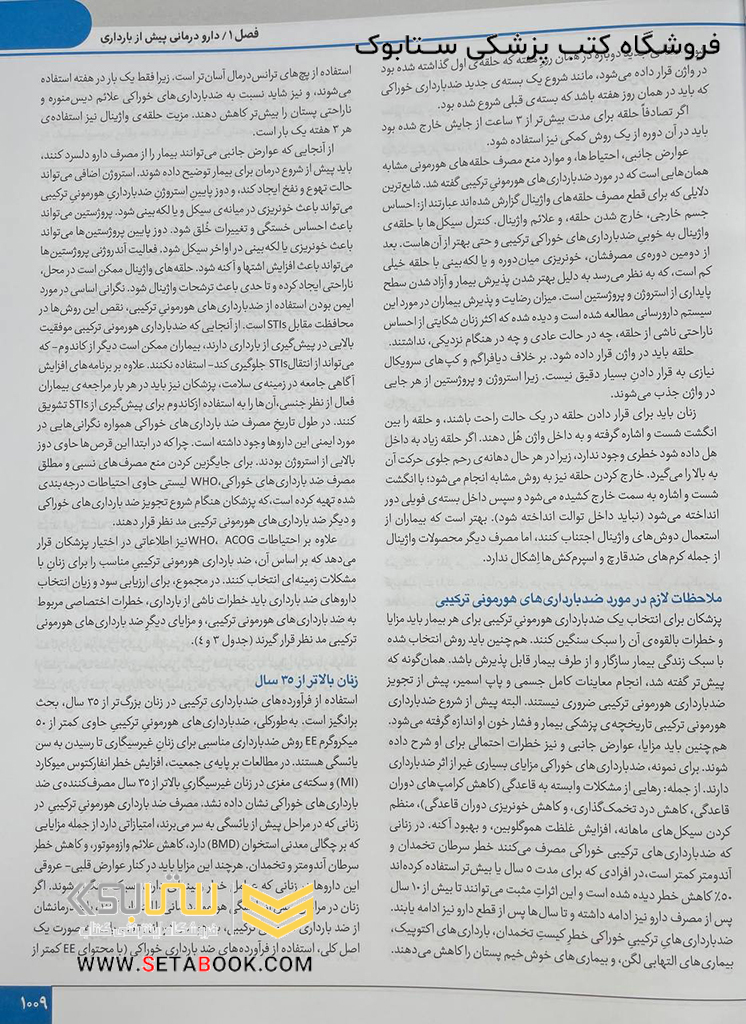 فصل ۱/ دارو درمانی پیش از بارداری
فروشگاه کتب پزشکی ستابوک
در واژن قرار داده می‌شود، مانند شروع یک بسته‌ی جدید ضدبارداری خوراکی
که باید در همان روز هفته باشد که بسته‌ی قبلی شروع شده بود.
اگر تصادفاً حلقه برای مدت بیش‌تر از ۳ ساعت از جایش خارج شده بود
باید در آن دوره از یک روش کمکی نیز استفاده شود.
عوارض جانبی، احتیاط‌ها، و موارد منع مصرف حلقه‌های هورمونی مشابه
همان‌هایی است که در مورد ضدبارداری‌های هورمونیِ ترکیبی گفته شد. شایع‌ترین
دلایلی که برای قطع مصرف حلقه‌های واژینال گزارش شده‌اند عبارتند از: احساس
جسم خارجی، خارج شدن حلقه، و علائم واژینال. کنترل سیکل‌ها با حلقه‌ی
واژینال به خوبیِ ضدبارداری‌های خوراکی ترکیبی و حتی بهتر از آن‌هاست. بعد
از دومین دوره‌ی مصرفشان، خونریزی میان‌دوره و یا لکه‌بینی با حلقه خیلی
کم است، که به نظر می‌رسد به دلیل بهتر شدن پذیرش بیمار و آزاد شدن سطح
پایداری از استروژن و پروژستین است. میزان رضایت و پذیرش بیماران در مورد این
سیستم دارورسانی مطالعه شده است و دیده شده که اکثر زنان شکایتی از احساس
ناراحتی ناشی از حلقه، چه در حالت عادی و چه در هنگام نزدیکی، نداشتند.
حلقه باید در واژن قرار داده شود. بر خلاف دیافراگم و کپ‌های سرویکال
نیازی به قرار دادنِ بسیار دقیق نیست. زیرا استروژن و پروژستین از هر جایی
در واژن جذب می‌شوند.
زنان باید برای قرار دادن حلقه در یک حالت راحت باشند، و حلقه را بین
انگشت شست و اشاره گرفته و به داخل واژن هُل دهند. اگر حلقه زیاد به داخل
هل داده شود خطری وجود ندارد، زیرا در هر حال دهانه‌ی رحم جلوی حرکت آن
به بالا را می‌گیرد. خارج کردن حلقه نیز به روش مشابه انجام می‌شود؛ با انگشت
شست و اشاره به سمت خارج کشیده می‌شود و سپس داخل بسته‌ی فویلی دور
انداخته می‌شود (نباید داخل توالت انداخته شود). بهتر است که بیماران از
استعمال دوش‌های واژینال اجتناب کنند، اما مصرف دیگر محصولات واژینال
از جمله کرم‌های ضدقارچ و اسپرم‌کش‌ها اِشکال ندارد.
ملاحظات لازم در مورد ضدبارداری‌های هورمونی ترکیبی
پزشکان برای انتخاب یک ضدبارداری هورمونیِ ترکیبی برای هر بیمار باید مزایا
و خطرات بالقوه‌ی آن را سبک سنگین کنند. هم‌چنین باید روش انتخاب شده
با سبک زندگی بیمار سازگار و از طرف بیمار قابل پذیرش باشد. همان‌گونه که
پیش‌تر گفته شد، انجام معاینات کامل جسمی و پاپ اسمیر، پیش از تجویز
ضدبارداری هورمونی ترکیبی ضروری نیستند. البته پیش از شروع ضدبارداری
هورمونی ترکیبی تاریخچه‌ی پزشکی بیمار و فشار خون او اندازه گرفته می‌شود.
هم‌چنین باید مزایا، عوارض جانبی و نیز خطرات احتمالی برای او شرح داده
شوند. برای نمونه، ضدبارداری‌های خوراکی مزایای بسیاری غیر از اثر ضدبارداری
دارند. از جمله: رهایی از مشکلات وابسته به قاعدگی (کاهش کرامپ‌های دوران
قاعدگی، کاهش درد تخمک‌گذاری، و کاهش خونریزی دوران قاعدگی)، منظم
کردن سیکل‌های ماهانه، افزایش غلظت هموگلوبین، و بهبود آکنه. در زنانی
که ضدبارداری‌های ترکیبی خوراکی مصرف می‌کنند خطر سرطان تخمدان و
آندومتر کمتر است، در افرادی که برای مدت ۵ سال یا بیش‌تر استفاده کرده‌اند
۵۰٪ کاهش خطر دیده شده است و این اثراتِ مثبت می‌توانند تا بیش از ۱۰ سال
پس از مصرف دارو نیز ادامه داشته و تا سال‌ها پس از قطع دارو نیز ادامه یابند.
ضدبارداری‌های ترکیبیِ خوراکی خطر کیستِ تخمدان، بارداری‌های اکتوپیک،
بیماری‌های التهابی لگن، و بیماری‌های خوش‌خیم پستان را کاهش می‌دهند.
استفاده از پچ‌های ترانس‌درمال آسان‌تر است. زیرا فقط یک بار در هفته استفاده
می‌شوند، و نیز شاید نسبت به ضدبارداری‌های خوراکی علائم دیس‌منوره و
ناراحتی پستان را بیش‌تر کاهش دهند. مزیت حلقه‌ی واژینال نیز استفاده‌ی
هر ۳ هفته یک بار است.
از آنجایی که عوارض جانبی می‌توانند بیمار را از مصرف دارو دلسرد کنند،
باید پیش از شروع درمان برای بیمار توضیح داده شوند. استروژن اضافی می‌تواند
حالت تهوع و نفخ ایجاد کند، و دوز پایینِ استروژنِ ضدبارداری هورمونیِ ترکیبی
می‌تواند باعث خونریزی در میانه‌ی سیکل و یا لکه‌بینی شود. پروژستین می‌تواند
باعث احساس خستگی و تغییرات خُلق شود. دوز پایین پروژستین‌ها می‌تواند
باعث خونریزی یا لکه‌بینی در اواخر سیکل شود. فعالیت آندروژنی پروژستین‌ها
می‌تواند باعث افزایش اشتها و آکنه شود. حلقه‌های واژینال ممکن است در محل،
ناراحتی ایجاد کرده و تا حدی باعث ترشحات واژینال شود. نگرانی اساسی در مورد
ایمن بودن استفاده از ضدبارداری‌های هورمونیِ ترکیبی، نقص این روش‌ها در
محافظت مقابل STIs است. از آنجایی که ضدبارداری هورمونی ترکیبی موفقیت
بالایی در پیش‌گیری از بارداری دارند، بیماران ممکن است دیگر از کاندوم- که
می‌تواند از انتقال STIs جلوگیری کند- استفاده نکنند. علاوه بر برنامه‌های افزایش
آگاهی جامعه در زمینه‌ی سلامت، پزشکان نیز باید در هر بار مراجعه‌ی بیماران
فعال از نظر جنسی، آن‌ها را به استفاده ازکاندوم برای پیش‌گیری از STIs تشویق
کنند. در طول تاریخ مصرف ضد بارداری های خوراکی همواره نگرانی‌هایی در
مورد ایمنی این داروها وجود داشته است. چرا که در ابتدا این قرص‌ها حاوی دوز
بالایی از استروژن بودند. برای جایگزین کردن منع مصرف‌های نسبی و مطلق
مصرف ضد بارداری‌های خوراکی، WHO لیستی حاوی احتیاطات درجه‌بندی
شده تهیه کرده است، که پزشکان هنگام شروع تجویز ضد بارداری‌های خوراکی
و دیگر ضد بارداری‌های هورمونی ترکیبی مد نظر قرار دهند.
علاوه بر احتیاطات WHO، ACOG نیز اطلاعاتی در اختیار پزشکان قرار
می‌دهد که بر اساس آن، ضد بارداری هورمونی ترکیبیِ مناسب را برای زنانِ با
مشکلات زمینه‌ای انتخاب کنند. در مجموع، برای ارزیابی سود و زیان انتخاب
داروهای ضد بارداری باید خطرات ناشی از بارداری، خطرات اختصاصی مربوط
به ضد بارداری‌های هورمونی ترکیبی، و مزایای دیگرِ ضد بارداری‌های هورمونی
ترکیبی مد نظر قرار گیرند (جدول ۳ و ۴).
زنان بالاتر از ۳۵ سال
استفاده از فرآورده‌های ضدبارداری ترکیبی در زنان بزرگ‌تر از ۳۵ سال، بحث
برانگیز است. به‌طورکلی، ضدبارداری‌های هورمونیِ ترکیبیِ حاوی کمتر از ۵۰
میکروگرم EE روش ضدبارداری مناسبی برای زنانِ غیرسیگاری تا رسیدن به سن
یائسگی هستند. در مطالعات بر پایه‌ی جمعیت، افزایش خطر انفارکتوس میوکارد
(MI) و سکته‌ی مغزی در زنان غیرسیگاریِ بالاتر از ۳۵ سال مصرف‌کننده‌ی ضد
بارداری‌های خوراکی نشان داده نشد. مصرف ضد بارداری هورمونیِ ترکیبی در
زنانی که در مراحل پیش از یائسگی به سر می‌برند، امتیازاتی دارد از جمله مزایایی
که بر چگالی معدنی استخوان (BMD) دارد، کاهش علائم وازوموتور، و کاهش خطر
سرطان آندومتر و تخمدان. هرچند این مزایا باید در کنار عوارض قلبی- عروقی
این داروها در زنانی که
شوند. اگر
زنان در
درمانشان
از ضد بارداری
صورت یک
اصل کلی، استفاده از فرآورده‌های ضد بارداری خوراکی (با محتوای EE کمتر از
ستابوک
فروشگاه اینترنتی کتاب
WWW.SETABOOK.COM
۱۰۰۹